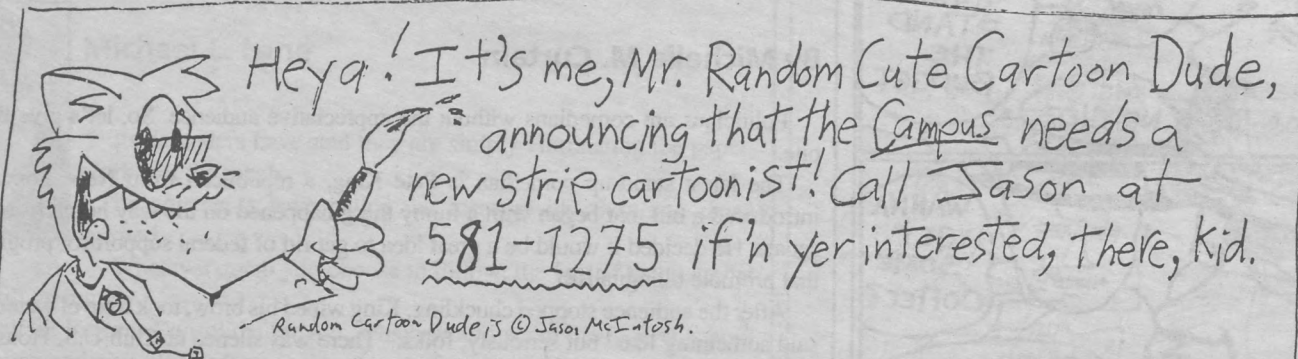 Heya! It's me, Mr. Random Cute Cartoon Dude,
announcing that the Campus needs a
new strip cartoonist! Call Jason at
581 1275 if'n yer interested, there, kid.
Random Cartoon Dude is © Jason McIntosh.